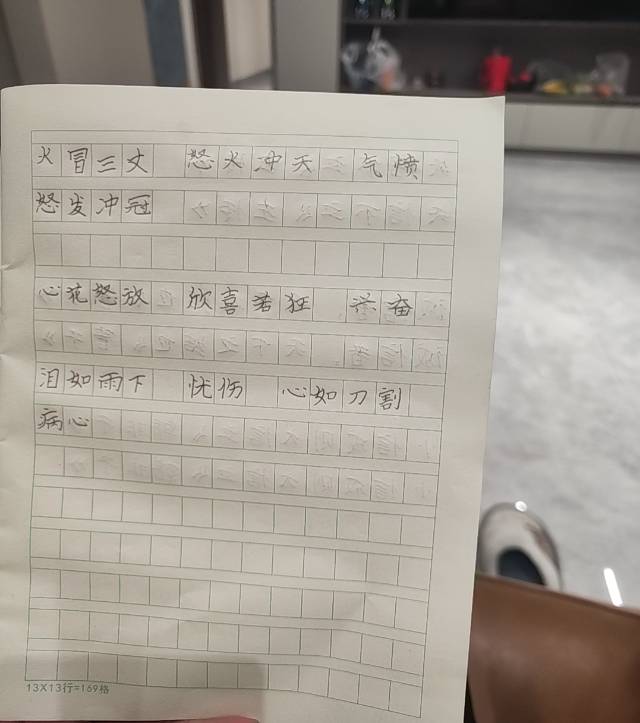 火冒三丈 怒火冲天 气愤
怒发冲冠
心花怒放 欣喜若狂 兴奋
泪如雨下 忧伤 心如刀割
病心
13X13行=169格